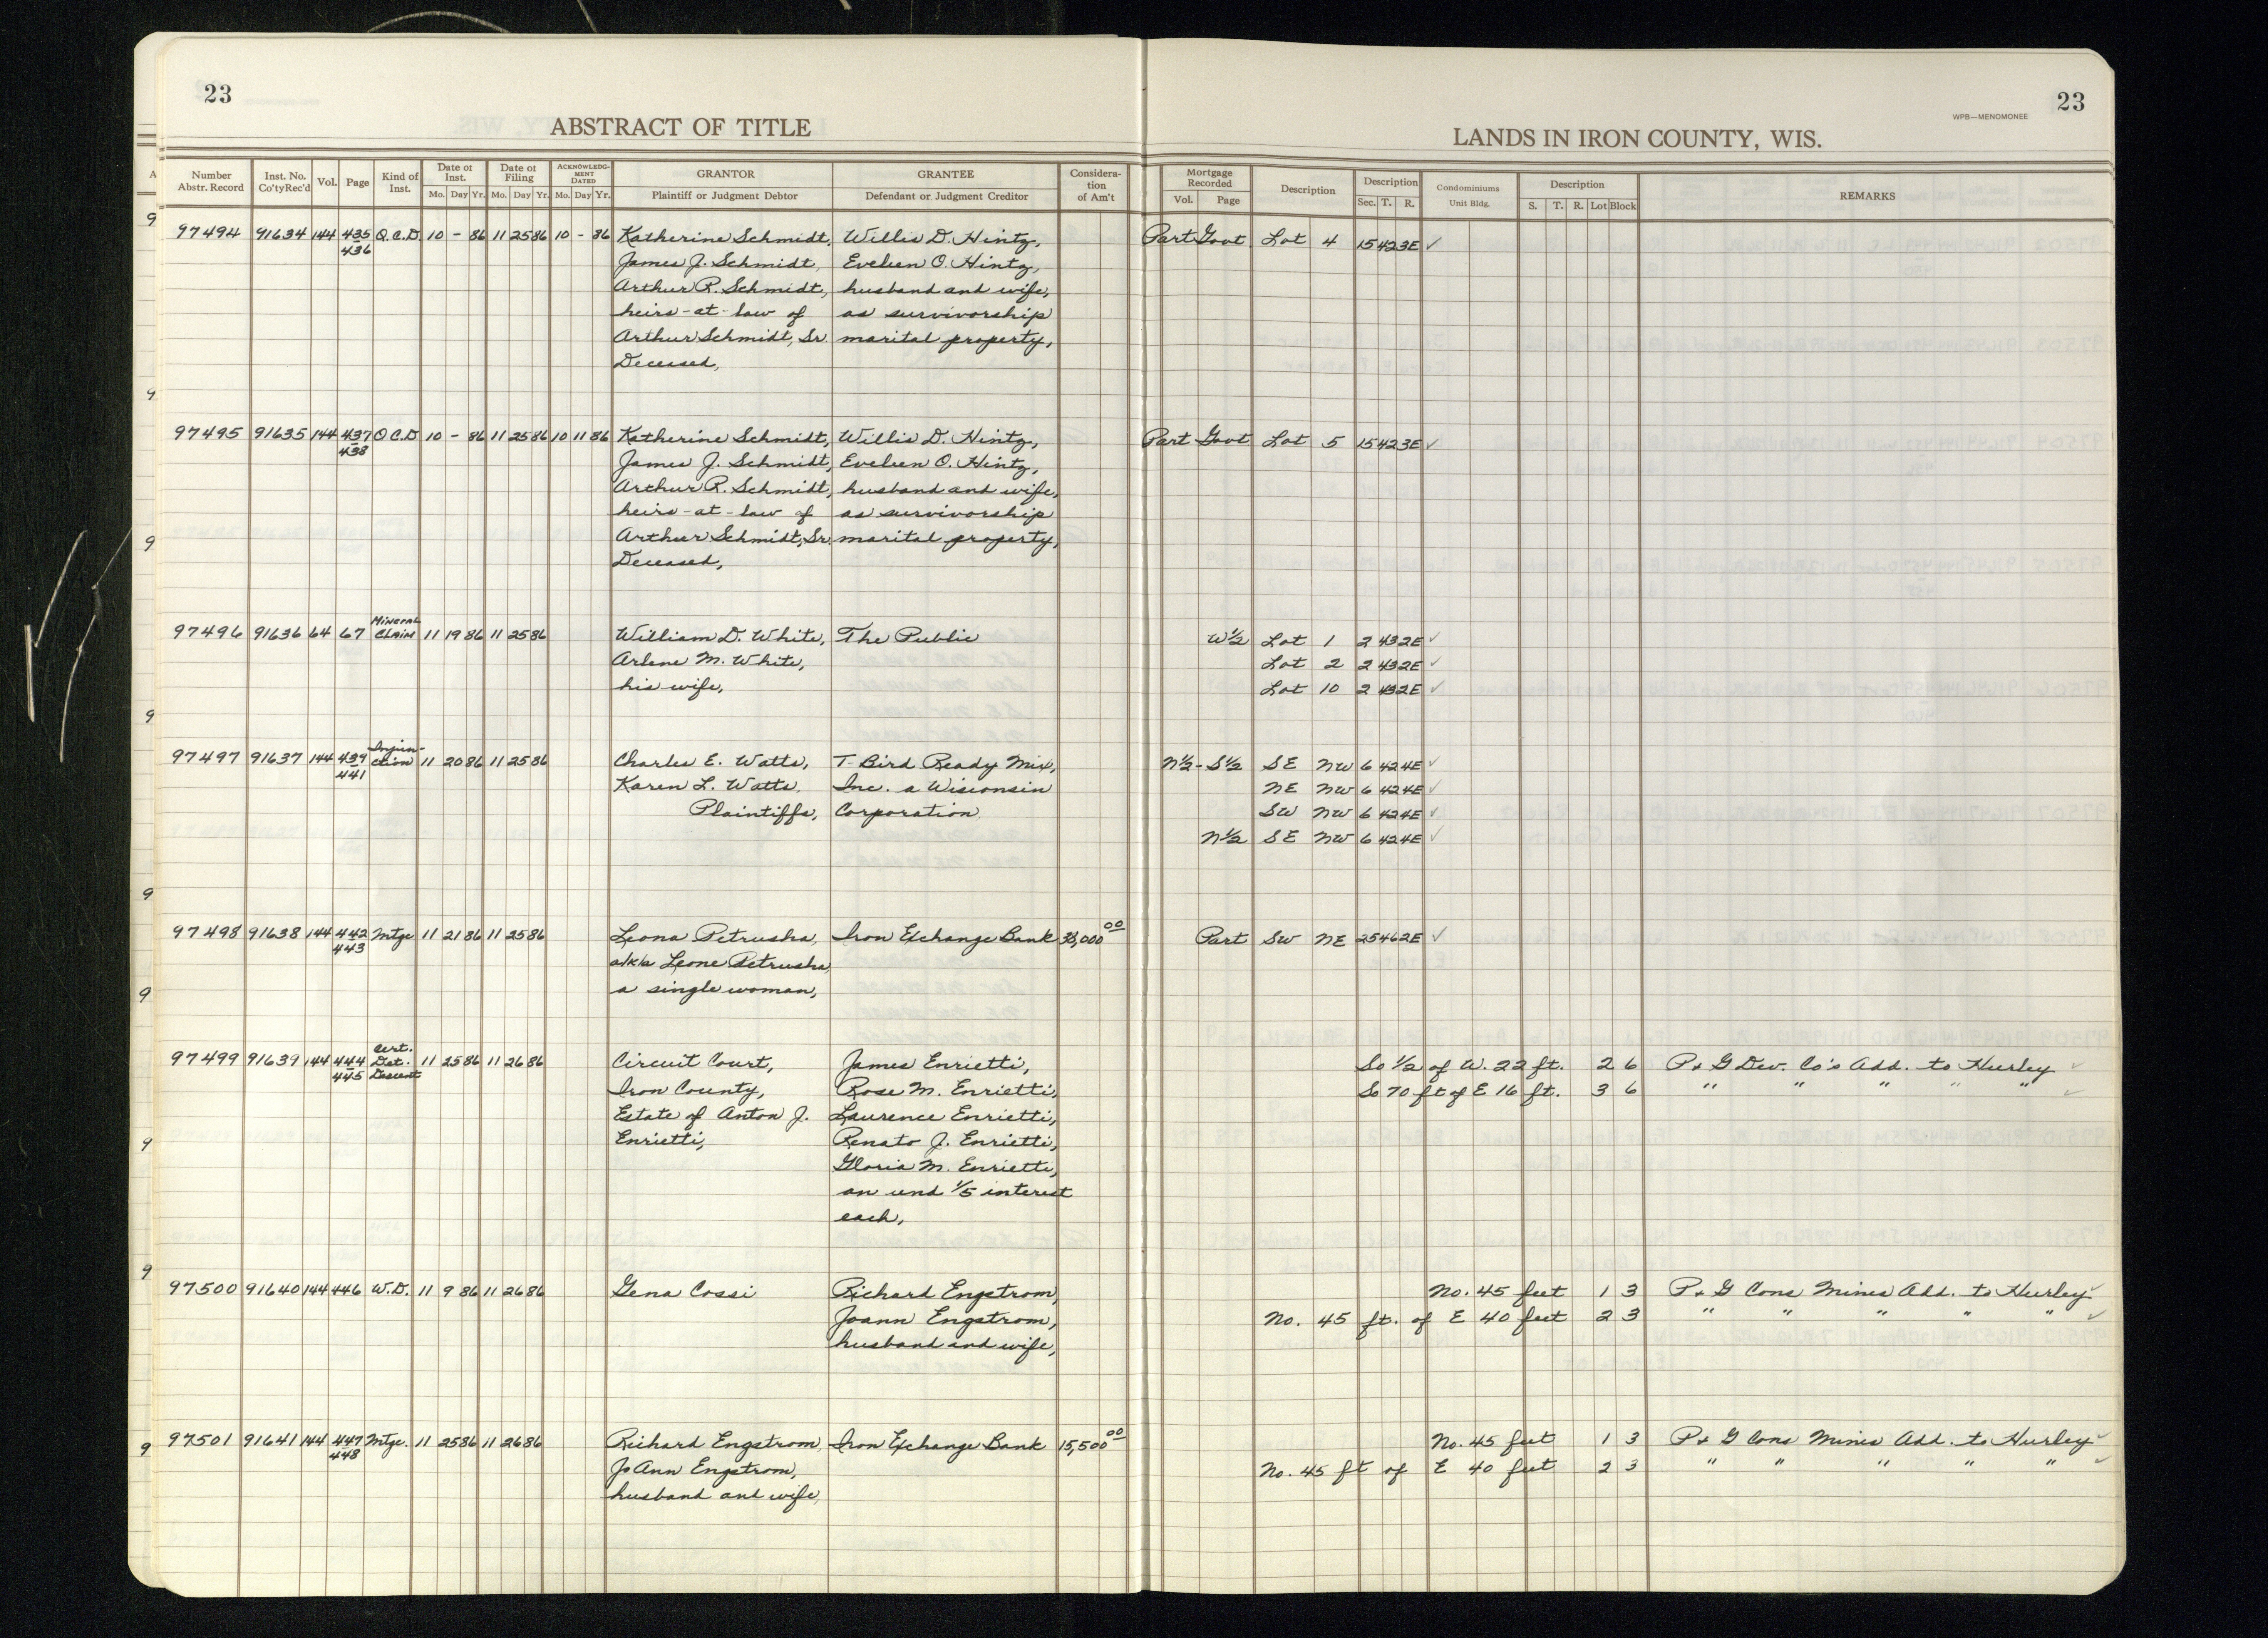 23
23
WPB—MENOMONEE
ABSTRACT OF TITLE
LANDS IN IRON COUNTY, WIS.
Number Abstr. Record | Inst. No. Co'ty Rec'd | Vol. | Page | Kind of Inst. | Date of Inst. Mo. Day Yr. | Date of Filing Mo. Day Yr. | ACKNOWLEDGMENT DATED Mo. Day Yr. | GRANTOR Plaintiff or Judgment Debtor | GRANTEE Defendant or Judgment Creditor | Consideration of Am't | Mortgage Recorded Vol. Page | Description | Description Sec. T. R. | Condominiums Unit Bldg. | Description S. T. R. Lot Block | REMARKS
97494 91634 144 435 Q.C.D. 10 - 86 11 25 86 10 - 86 Katherine Schmidt, Willis D. Hintz, Part Govt Lot 4 15 42 3E ✓
436 James J. Schmidt, Eveleen O. Hintz,
Arthur R. Schmidt, husband and wife,
heirs-at-law of as survivorship
Arthur Schmidt, Sr. marital property,
Deceased,
97495 91635 144 437 Q.C.D. 10 - 86 11 25 86 10 11 86 Katherine Schmidt, Willis D. Hintz, Part Govt Lot 5 15 42 3E ✓
438 James J. Schmidt, Eveleen O. Hintz,
Arthur R. Schmidt, husband and wife,
heirs-at-law of as survivorship
Arthur Schmidt, Sr. marital property,
Deceased,
97496 91636 64 67 Mineral Claim 11 19 86 11 25 86 William D. White, The Public W½ Lot 1 2 43 2E ✓
Arlene M. White, Lot 2 2 43 2E ✓
his wife, Lot 10 2 43 2E ✓
97497 91637 144 439 Injunction 11 20 86 11 25 86 Charles E. Watts, T-Bird Ready Mix, N½-S½ SE NW 6 42 4E ✓
441 Karen L. Watts, Inc. a Wisconsin NE NW 6 42 4E ✓
Plaintiffs, Corporation SW NW 6 42 4E ✓
N½ SE NW 6 42 4E ✓
97498 91638 144 442 Mtge 11 21 86 11 25 86 Leona Petrusha, Iron Exchange Bank 38,000 00 Part SW NE 25 46 2E ✓
443 a/k/a Leone Petrusha,
a single woman,
97499 91639 144 444 Cert. Det. Descent 11 25 86 11 26 86 Circuit Court, James Enrietti, So ½ of W. 22 ft. 2 6 P & G Dev. Co's Add. to Hurley ✓
445 Iron County, Rose M. Enrietti, So 70 ft of E 16 ft. 3 6 " " " " " ✓
Estate of Anton J. Laurence Enrietti,
Enrietti, Renato J. Enrietti,
Gloria M. Enrietti,
an und 1/5 interest
each,
97500 91640 144 446 W.D. 11 9 86 11 26 86 Gena Cossi Richard Engstrom, No. 45 feet 1 3 P & G Cons Mines Add. to Hurley ✓
Joann Engstrom, No. 45 ft. of E 40 feet 2 3 " " " " " ✓
husband and wife,
97501 91641 144 447 Mtge. 11 25 86 11 26 86 Richard Engstrom, Iron Exchange Bank 15,500 00 No. 45 feet 1 3 P & G Cons Mines Add. to Hurley ✓
448 JoAnn Engstrom, No. 45 ft of E 40 feet 2 3 " " " " " ✓
husband and wife,